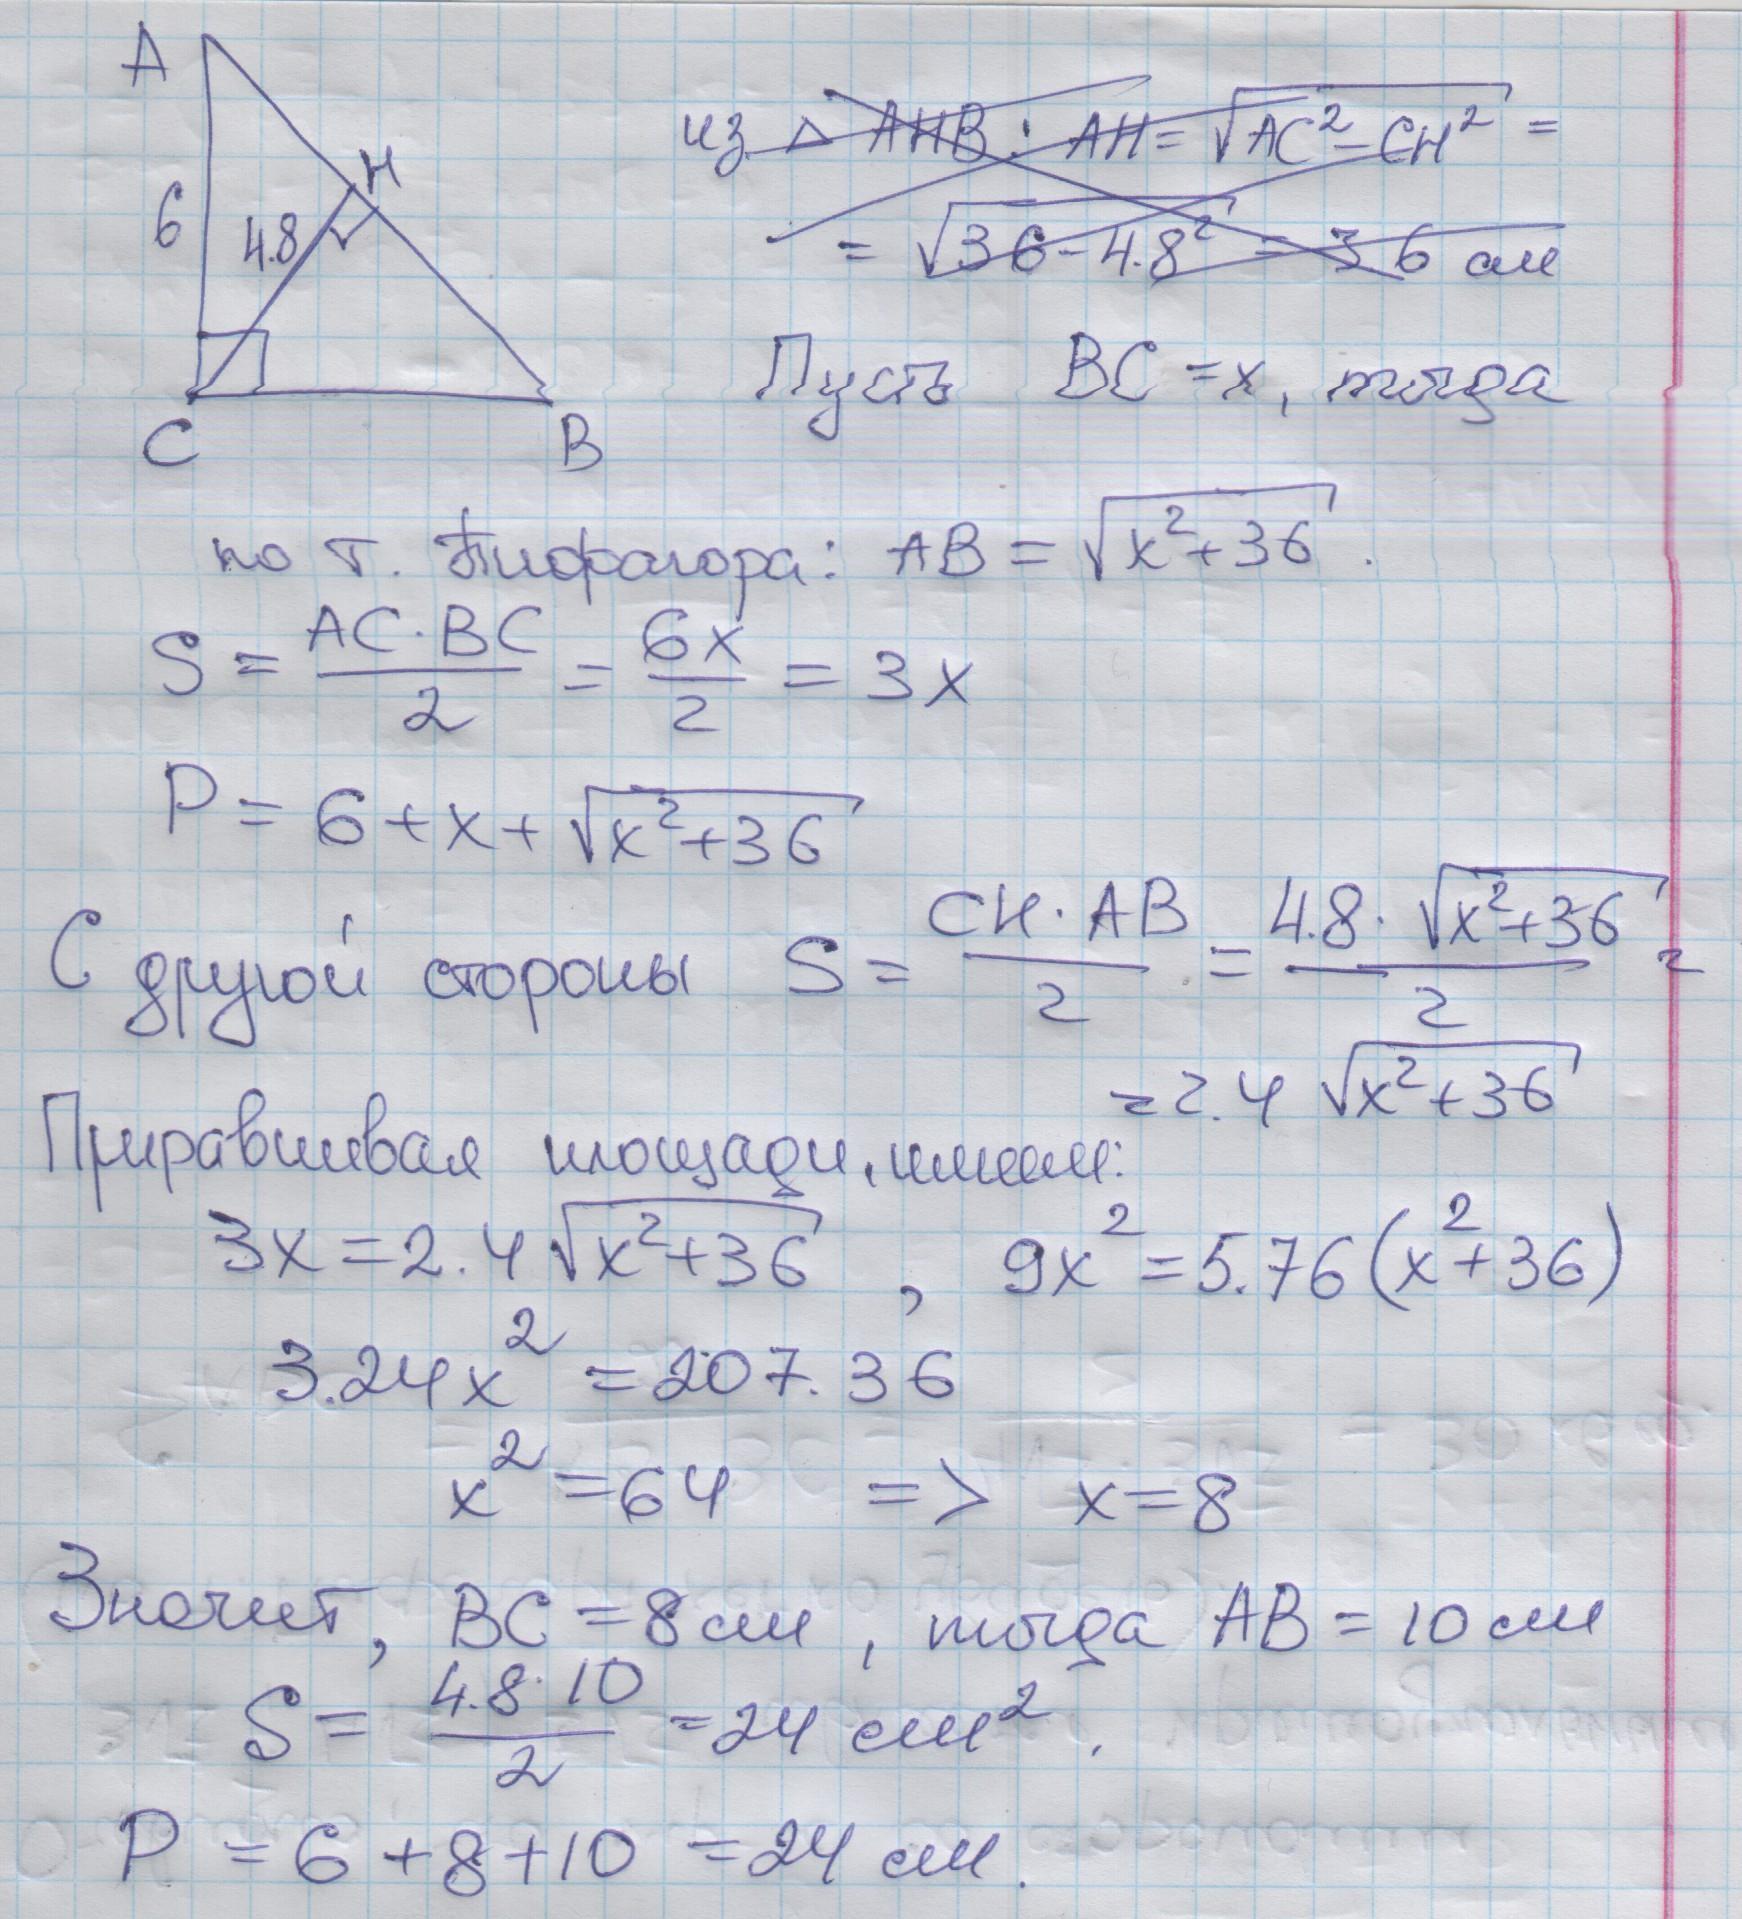 A
H
6
4.8
C
B
из △ AHB: AH = √AC² - CH² =
= √36 - 4.8² = 36 см
Пусть BC = x, тогда
по т. Пифагора: AB = √x² + 36.
S = AC · BC / 2 = 6x / 2 = 3x
P = 6 + x + √x² + 36
С другой стороны S = CH · AB / 2 = 4.8 · √x² + 36 / 2 =
= 2.4 √x² + 36
Приравнивая площади, имеем:
3x = 2.4 √x² + 36 , 9x² = 5.76 (x² + 36)
3.24x² = 207.36
x² = 64 => x = 8
Значит, BC = 8 см, тогда AB = 10 см
S = 4.8 · 10 / 2 = 24 см².
P = 6 + 8 + 10 = 24 см.